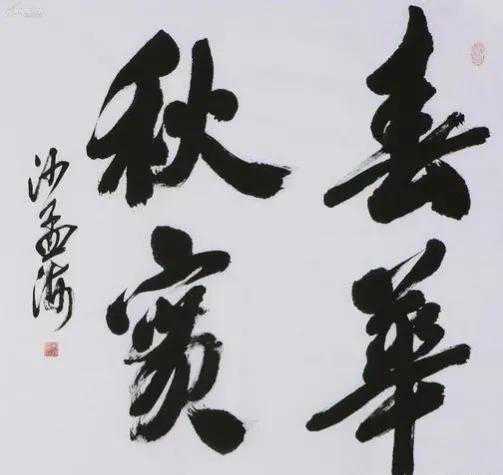 春華
秋實
沙孟海